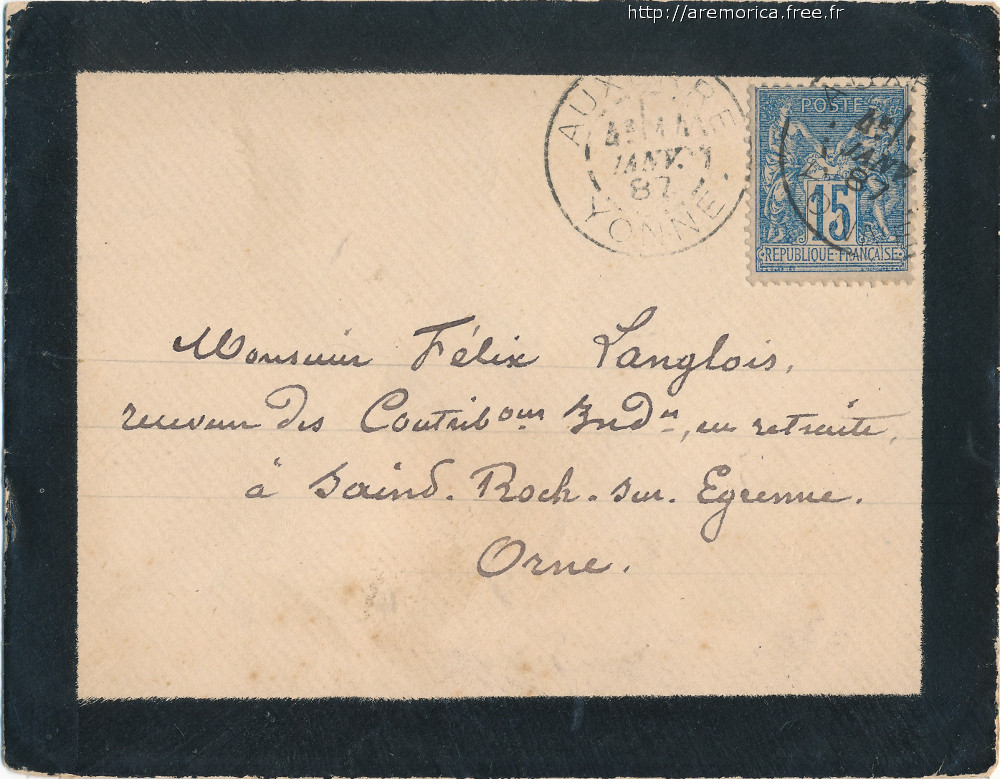 http://aremorica.free.fr
AUXERRE
JANV.
87
YONNE
POSTE
15
REPUBLIQUE FRANÇAISE
JANV
87
Monsieur Félix Langlois,
receveur des Contrib^ons Ind^es, en retraite,
à Saint-Roch-sur-Egrenne.
Orne.